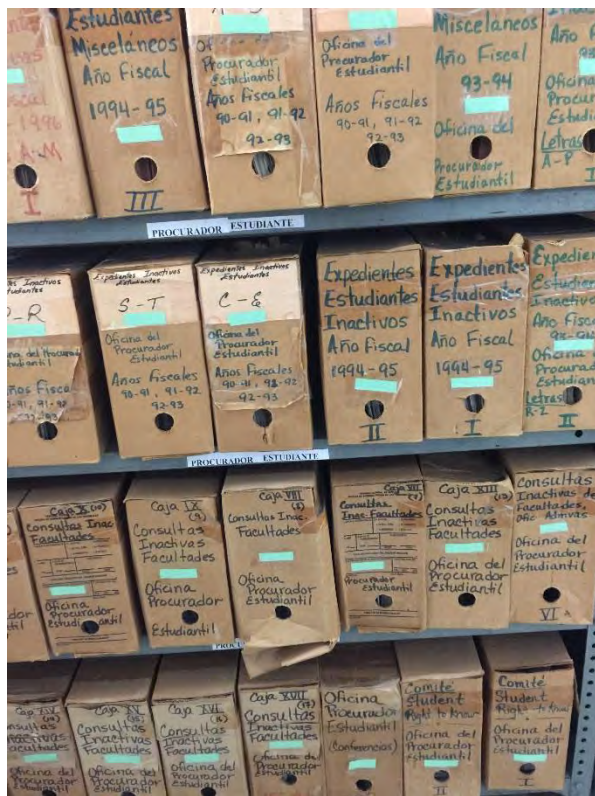 1996
A-M
I
Estudiantes
Misceláneos
Año Fiscal
1994-95
III
Procurador
Estudiantil
Años Fiscales
90-91, 91-92
92-93
Oficina del
Procurador
Estudiantil
Años Fiscales
90-91, 91-92
92-93
Misceláneos
Año Fiscal
93-94
Oficina del
Procurador
Estudiantil
Letras
A-P
PROCURADOR ESTUDIANTE
Expedientes Inactivos
Estudiantes
S-T
Oficina del
Procurador
Estudiantil
Años Fiscales
90-91, 91-92
92-93
Expedientes Inactivos
Estudiantes
C-E
Oficina del
Procurador
Estudiantil
Años Fiscales
90-91, 91-92
92-93
Expedientes
Estudiantes
Inactivos
Año Fiscal
1994-95
II
Expedientes
Estudiantes
Inactivos
Año Fiscal
1994-95
I
Letras
R-Z
II
PROCURADOR ESTUDIANTE
Caja X (10)
Consultas Inac.
Facultades
Oficina
Procurador
Estudiantil
Caja IX
(9)
Consultas
Inactivas
Facultades
Oficina
Procurador
Estudiantil
Caja VIII
(8)
Consultas Inac.
Facultades
Oficina
Procurador
Estudiantil
Caja VII
(7)
Consultas
Inac. Facultades
Procurador
Estudiantil
Caja XIII
(13)
Consultas
Inactivas
Facultades
Oficina del
Procurador
Estudiantil
Consultas
Inactivas de
Facultades,
Ofic. Admvas.
Oficina del
Procurador
Estudiantil
VI A
Caja XV
(15)
Consultas
Inactivas
Facultades
Oficina del
Procurador
Estudiantil
Caja XVI
(16)
Consultas
Inactivas
Facultades
Oficina del
Procurador
Estudiantil
Caja XVII
(17)
Consultas
Inactivas
Facultades
Oficina del
Procurador
Estudiantil
Oficina
Procurador
Estudiantil
(Conferencias)
Comité
Student
Right to Know
Oficina del
Procurador
Estudiantil
II
Comité
Student
Right to Know
Oficina del
Procurador
Estudiantil
I